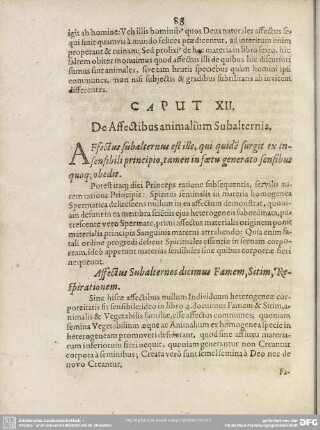 88
igit ab homine: Vel illis hominibꝰ quos Deus naturales affectus se-
qui sinit quamvis à mundo felices prædicentur, ad interitum enim
properant & ruinam; Sed prolixiꝰ de hac materia in libro sexto, hic
saltem obiter monuimus quod affectus illi de quibus hic discursuri
sumus sint animales, sive tam brutis speciebus quàm homini ipsi
communes, non nisi subjectis & gradibus subtilitatis ab invicem
differentes.
CAPUT XII.
De Affectibus animalium Subalternis.
AFfectus subalternus est ille, qui quidẽ surgit ex in-
sensibili principio, tamen in fœtu generato sensibus
quoq; obedit.
Potest itaq; dici Princeps ratione subsequentis, servilis au-
tem ratione Principis: Spiritus seminalis ex materia homogenea
Spermatica delitescens nullum in ea affectum demonstrat, quoni-
am desunt in ea membra scientiæ ejus heterogeneis subordinata, pu-
trescente verò Spermate, primi affectus materialis originem ponit
materialis principia Sanguinis materni attrahendo: Quia enim fa-
tali ordine progredi debent Spirituales essentiæ in scenam corpo-
team, ideò appetunt materias sensibiles sine quibus corporeæ fieri
nequeunt.
Affectus Subalternos dicimus Famem, Sitim, Re-
spirationem.
Sine hisce affectibus nullum Individuum heterogeneæ cor-
poreitatis sit sensibile: ideo in libro 4. docuimus Famem & Sitim, a-
nimalis & Vegetabilis familiæ, esse affectum communes, quoniam
semina Vegetabilium æque ac Animalium ex homogenea specie in
heterogeneam promoveri desiderant, quod sine affluxu materia-
rum inferiorum fieri nequit: quoniam generantur non Creantur
corpora à seminibus; Creata verò sunt semel semina à Deo nec de
novo Creantur.
Fa-